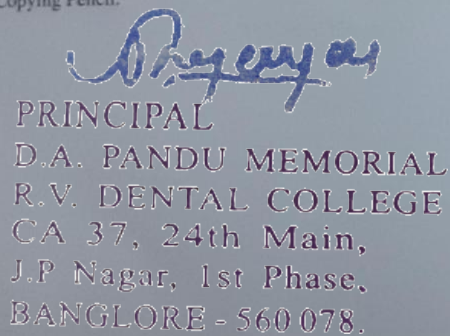 Copying Pencil.
PRINCIPAL
D.A. PANDU MEMORIAL
R.V. DENTAL COLLEGE
CA 37, 24th Main,
J.P Nagar, 1st Phase,
BANGLORE - 560 078.